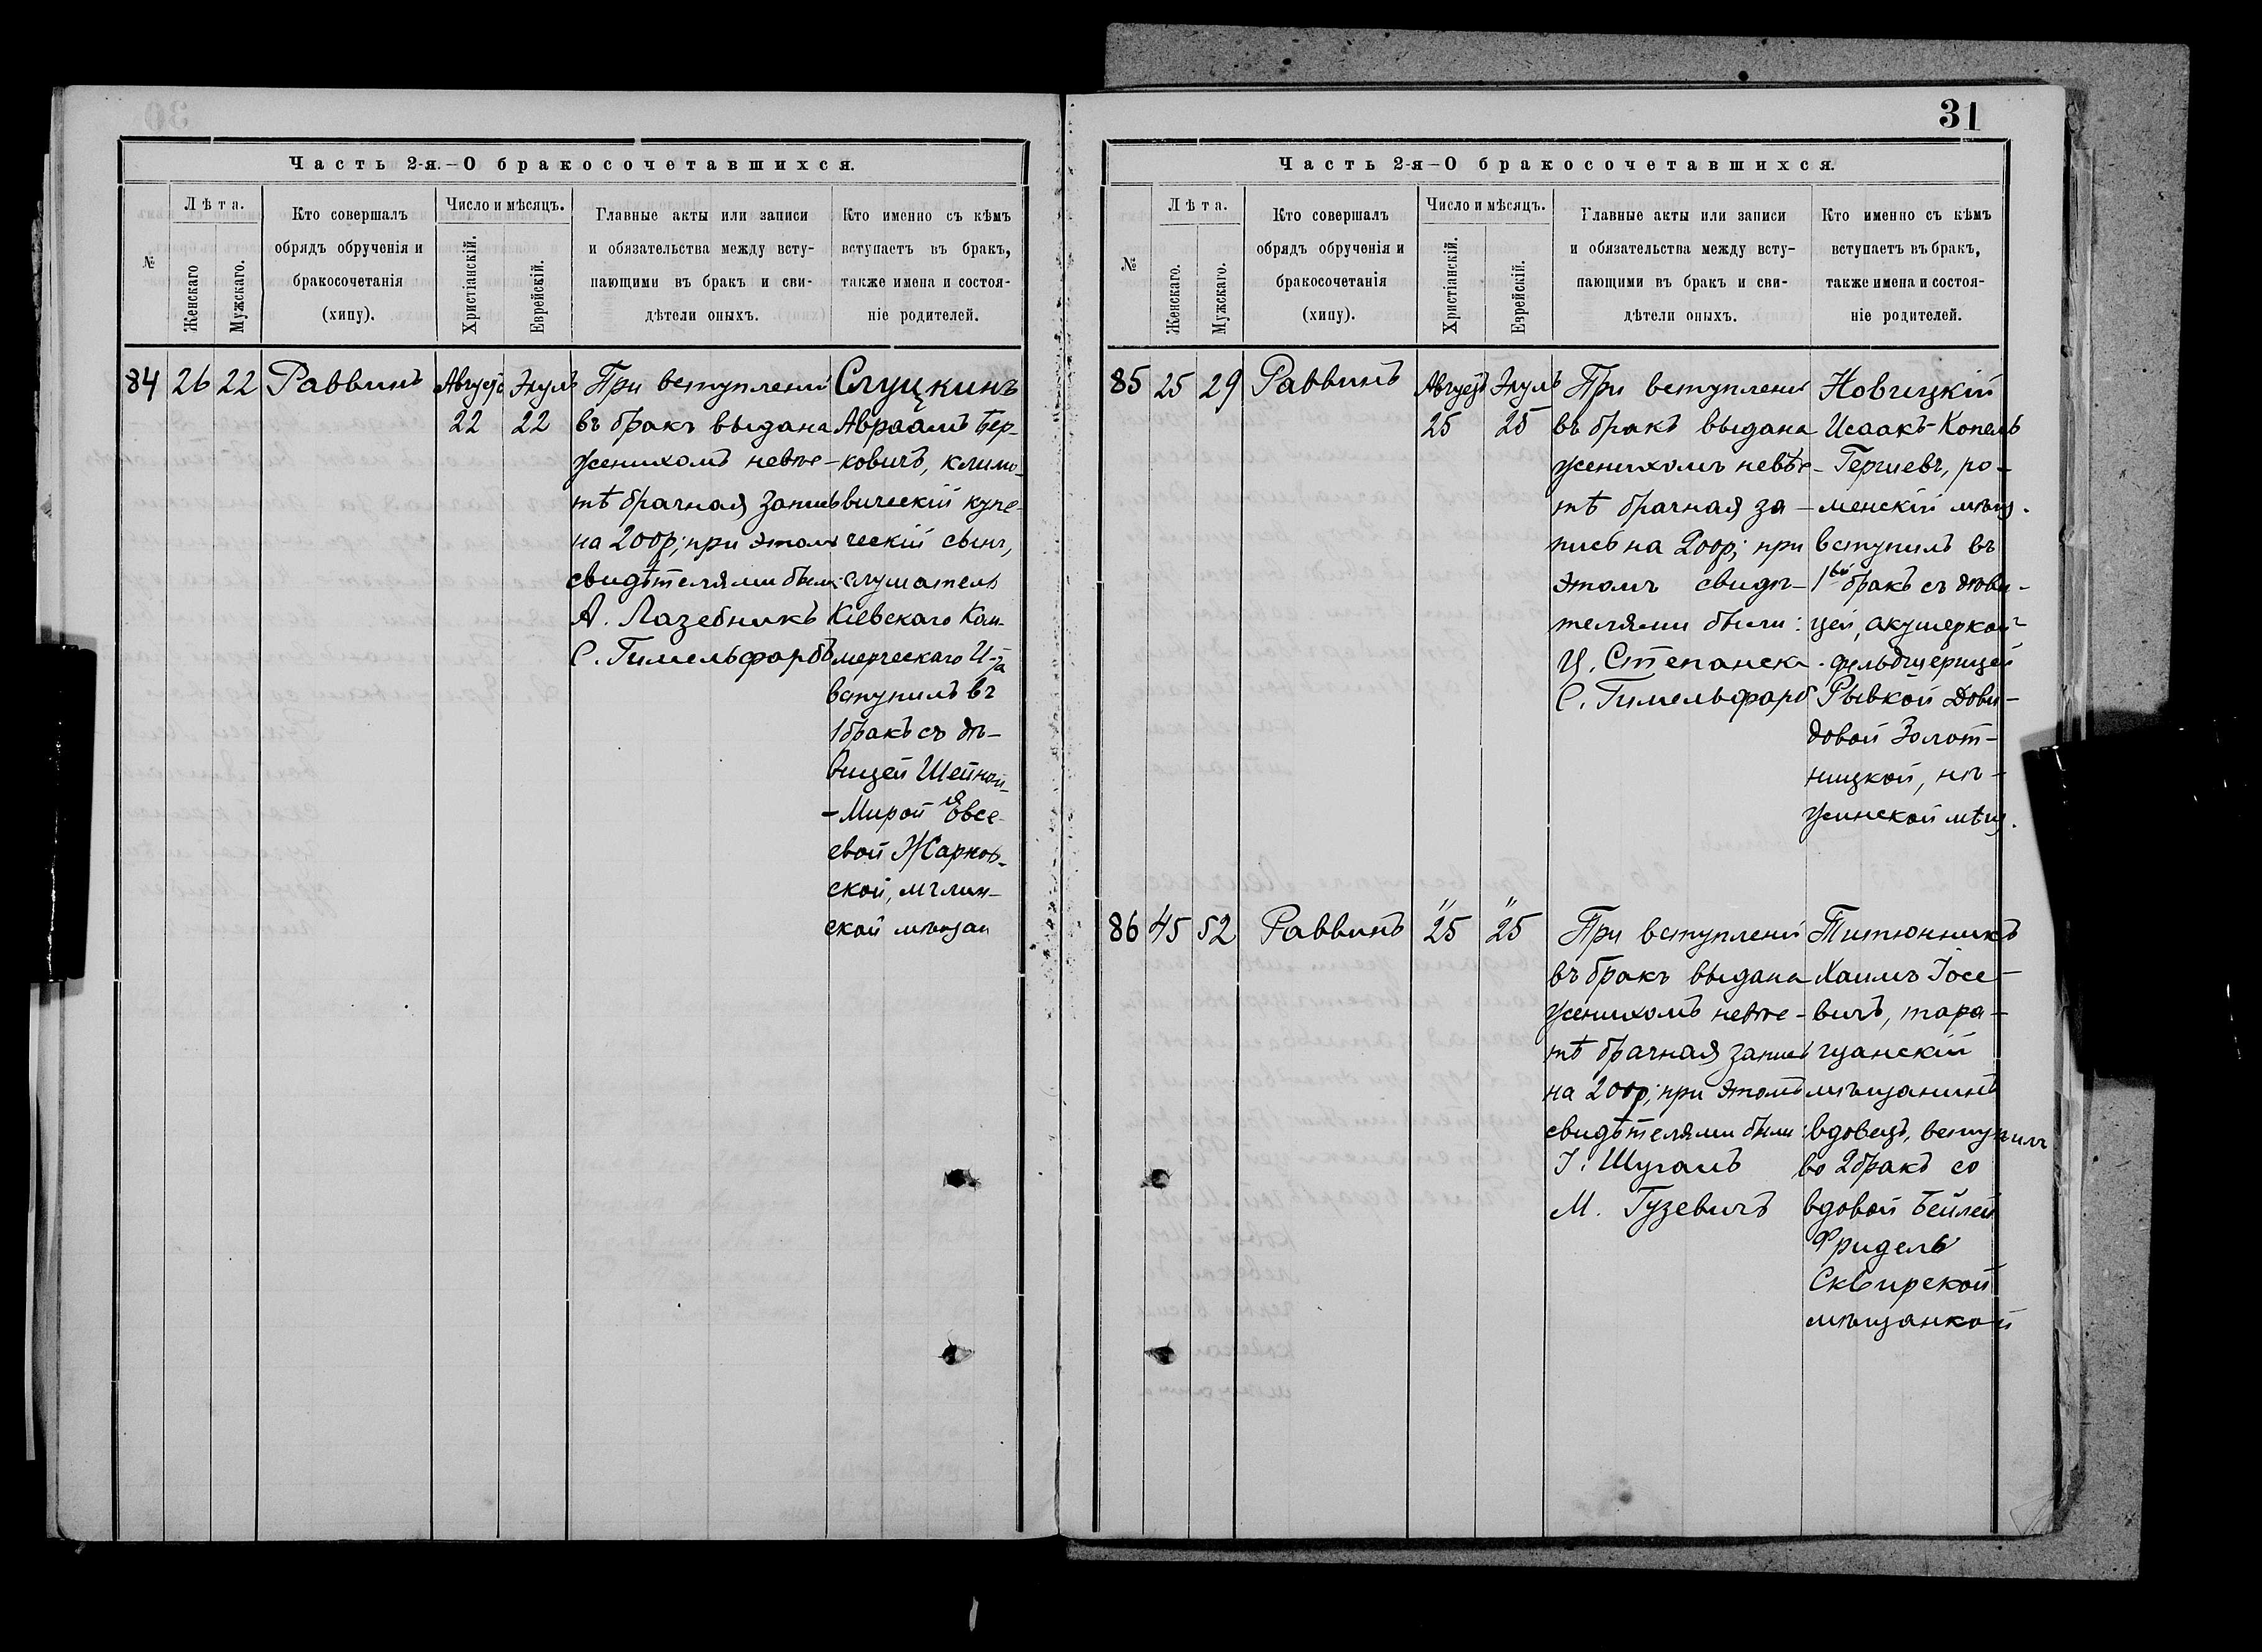 Часть 2-я.—О бракосочетавшихся.
№
Лѣта.
Женскаго
Мужскаго.
Кто совершалъ
обрядъ обрученія и
бракосочетанія
(хипу).
Число и мѣсяцъ.
Христіанскій.
Еврейскій.
Главные акты или записи
и обязательства между всту-
пающими въ бракъ и сви-
дѣтели оныхъ.
Кто именно съ кѣмъ
вступаетъ въ бракъ,
также имена и состоя-
ніе родителей.
84
26
22
Раввинъ
Августъ
22
Элулъ
22
При вступленіи
въ бракъ выдана
женихомъ невѣс-
тѣ брачная запись
на 200 р; при этомъ
свидѣтелями были:
А. Лазебникъ
С. Гимельфарбъ
Слуцкинъ
Авраамъ Бер-
ковичъ, климо-
вическій купе-
ческій сынъ,
слушатель
Кіевскаго Ком-
мерческаго И-та
вступилъ въ
1 бракъ съ дѣ-
вицей Шейной-
-Мирой Евсе-
евой Жарков-
ской, мглин-
ской мѣщан
31
Часть 2-я—О бракосочетавшихся.
№
Лѣта.
Женскаго.
Мужскаго.
Кто совершалъ
обрядъ обрученія и
бракосочетанія
(хипу).
Число и мѣсяцъ.
Христіанскій.
Еврейскій.
Главные акты или записи
и обязательства между всту-
пающими въ бракъ и сви-
дѣтели оныхъ.
Кто именно съ кѣмъ
вступаетъ въ бракъ,
также имена и состоя-
ніе родителей.
85
25
29
Раввинъ
Августъ
25
Элулъ
25
При вступленіи
въ бракъ выдана
женихомъ невѣс-
тѣ брачная за-
пись на 200 р; при
этомъ свидѣ-
телями были:
Ц. Степанска
С. Гимельфарб
Новицкій
Исаакъ-Копель
Гершевъ, ро-
менскій мѣщ.
вступилъ въ
1ый бракъ съ дѣви-
цей, акушеркой-
фельдшерицей
Рывкой Дови-
довой Золот-
ницкой, нѣ-
жинской мѣщ.
86
45
52
Раввинъ
"
25
"
25
При вступленіи
въ бракъ выдана
женихомъ невѣс-
тѣ брачная запись
на 200 р; при этомъ
свидѣтелями были:
І. Шугалъ
М. Гузевичъ
Титюнникъ
Хаимъ Іосе-
вичъ, тара-
щанскій
мѣщанинъ
вдовецъ, вступилъ
во 2 бракъ со
вдовой Бейлей
Фридель
Сквирской
мѣщанкой